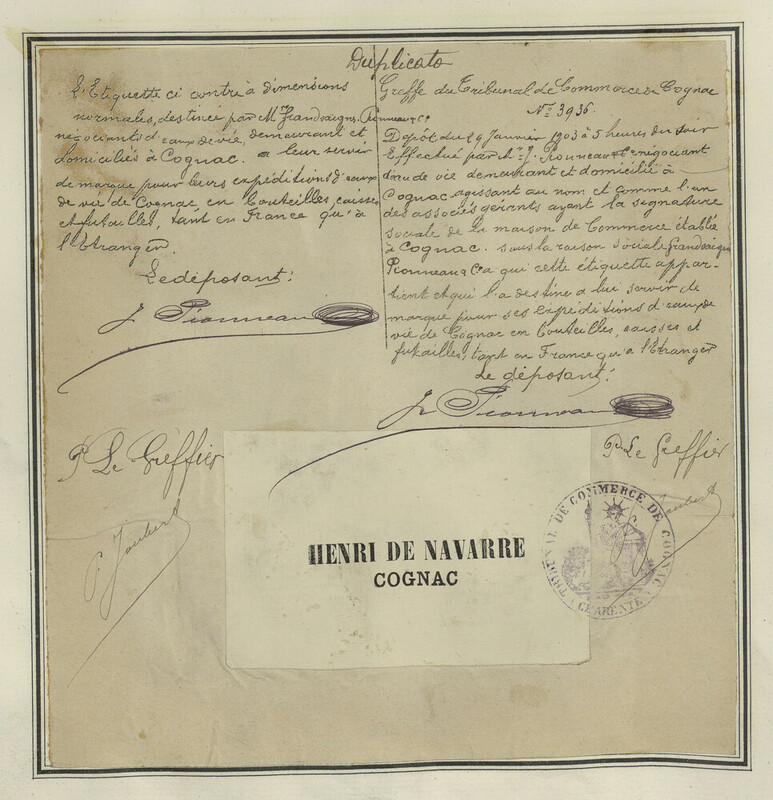 Duplicata
L'Etiquette ci contre à dimensions
normales, destinée par Mrs Grandsaigne, Pionneau & Cie
négociants d'eaux de vie, demeurant et
domiciliés à Cognac. a leur servir
de marque pour leurs expéditions d'eaux
de vie de Cognac en bouteilles, caisses
et futailles, tant en France qu'à
l'Etranger.
Le déposant:
J. Pionneau
Pr Le Greffier
P. Joubert
Greffe du Tribunal de Commerce de Cognac
No 3936.
Dépôt du 29 Janvier 1903 à 5 heures du soir
Effectué par Mr J. Pionneau négociant
d'eau de vie demeurant et domicilié à
Cognac agissant au nom et comme l'un
des associés gérants ayant la signature
sociale de la maison de Commerce établie
à Cognac. sous la raison Sociale Grandsaigne
Pionneau & Cie a qui cette étiquette appar-
tient et qui l'a destine a lui servir de
marque pour ses expéditions d'eaux de
vie de Cognac en bouteilles, caisses et
futailles, tant en France qu'a l'Etranger
Le déposant:
J. Pionneau
Pr Le Greffier
P. Joubert
HENRI DE NAVARRE
COGNAC
TRIBUNAL DE COMMERCE DE COGNAC
(CHARENTE)